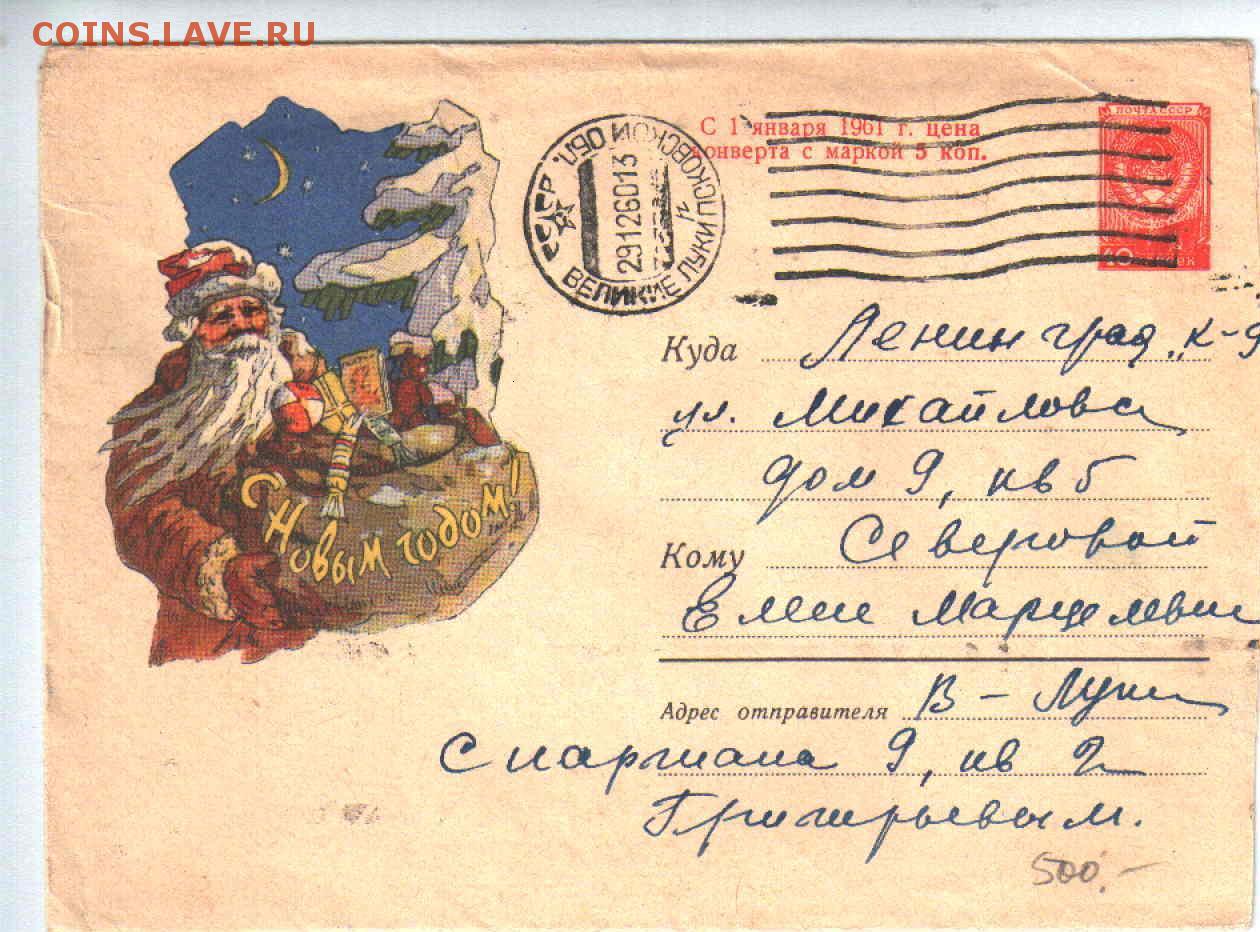 COINS.LAVE.RU
С 1 января 1961 г. цена
конверта с маркой 5 коп.
ПОЧТА СССР
40 КОПЕЕК
РСФСР
ВЕЛИКИЕ ЛУКИ ПСКОВСКОЙ ОБЛ.
29126013
С Новым годом!
Куда Ленинград „К-9
ул. Михайлова
дом 9, кв 5
Кому Северовой
Елене
Адрес отправителя В - Луки
Спартака 9, кв 2
Григорьевым.
500,-